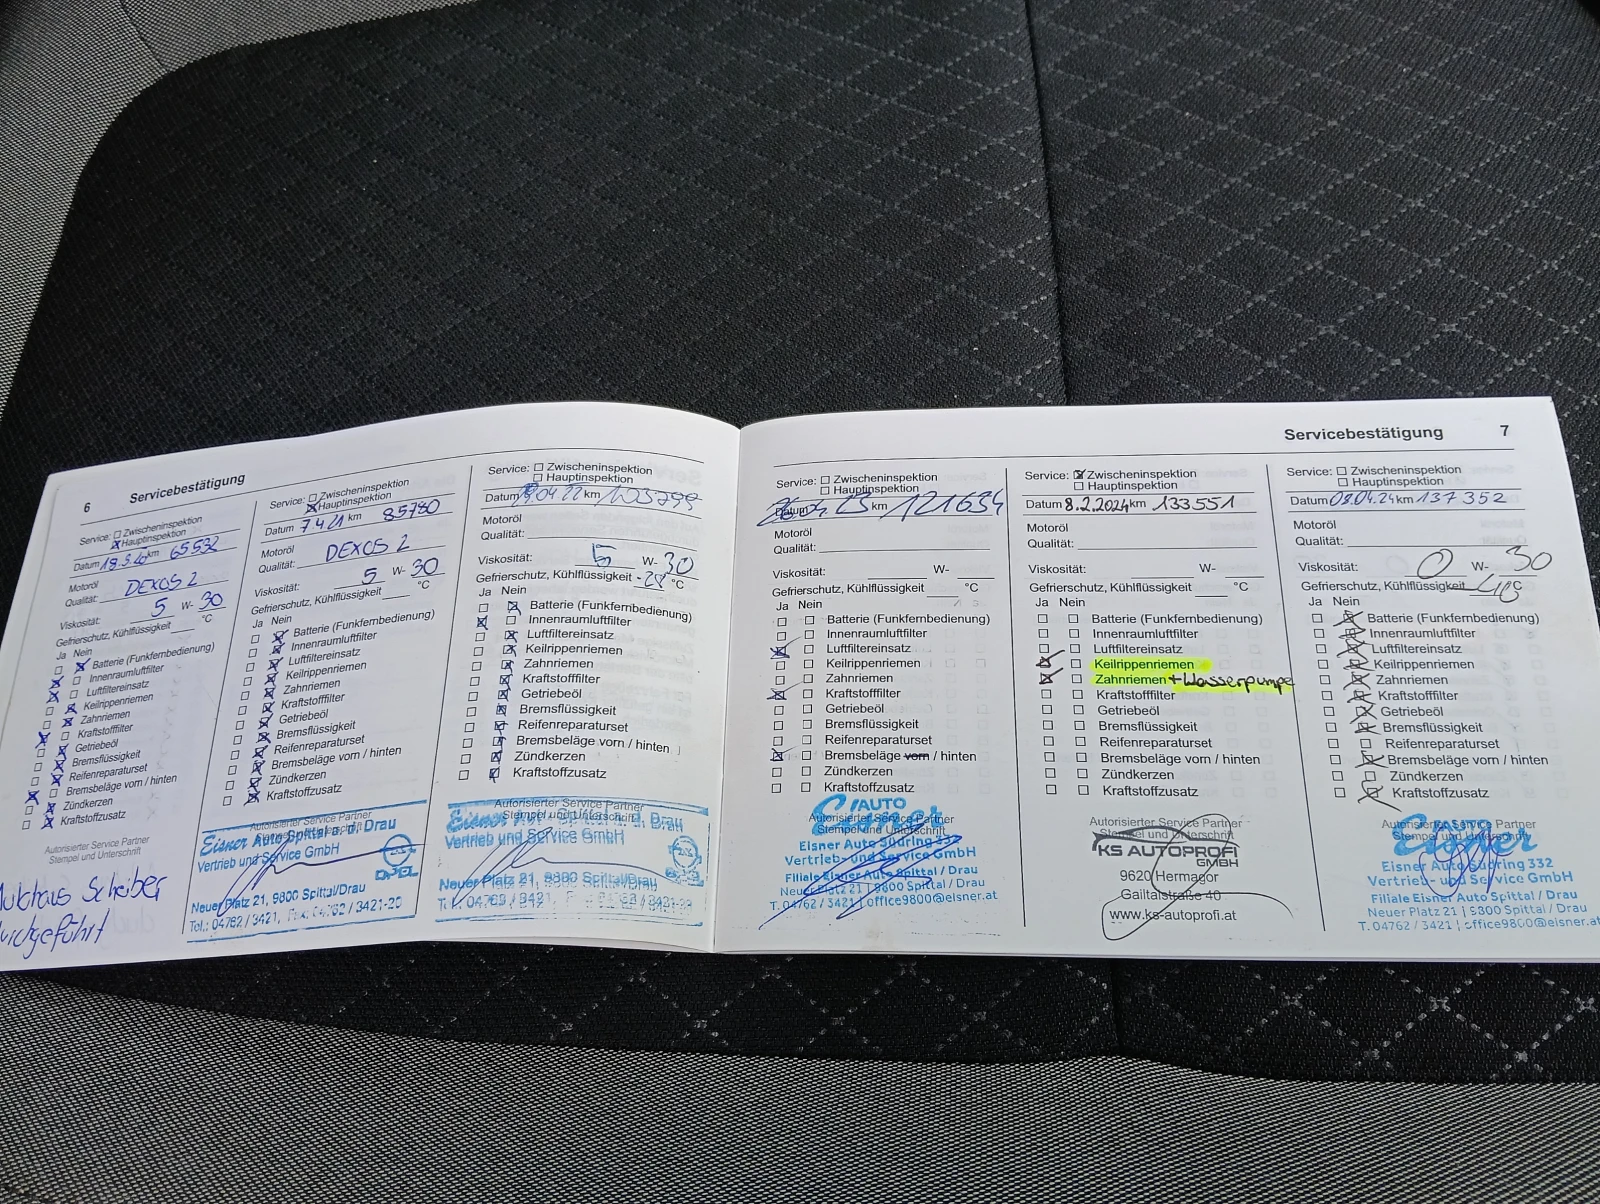 6 Servicebestätigung
Service: Zwischeninspektion
Hauptinspektion
Datum 18.5.20 km 65532
Motoröl
Qualität: DEXOS 2
Viskosität: 5 W- 30
Gefrierschutz, Kühlflüssigkeit °C
Ja Nein
Batterie (Funkfernbedienung)
Innenraumluftfilter
Luftfiltereinsatz
Keilrippenriemen
Zahnriemen
Kraftstofffilter
Getriebeöl
Bremsflüssigkeit
Reifenreparaturset
Bremsbeläge vorn / hinten
Zündkerzen
Kraftstoffzusatz
Autorisierter Service Partner
Stempel und Unterschrift
Service: Zwischeninspektion
Hauptinspektion
Datum 7.4.21 km 85780
Motoröl
Qualität: DEXOS 2
Viskosität: 5 W- 30
Gefrierschutz, Kühlflüssigkeit °C
Ja Nein
Batterie (Funkfernbedienung)
Innenraumluftfilter
Luftfiltereinsatz
Keilrippenriemen
Zahnriemen
Kraftstofffilter
Getriebeöl
Bremsflüssigkeit
Reifenreparaturset
Bremsbeläge vorn / hinten
Zündkerzen
Kraftstoffzusatz
Autorisierter Service Partner
Stempel und Unterschrift
Eisner Auto Spittal a. d. Drau
Vertrieb und Service GmbH
Neuer Platz 21, 9800 Spittal/Drau
Tel.: 04762 / 3421, Fax: 04762 / 3421-20
Service: Zwischeninspektion
Hauptinspektion
Datum .04.22 km 103799
Motoröl
Qualität:
Viskosität: 5 W- 30
Gefrierschutz, Kühlflüssigkeit -28 °C
Ja Nein
Batterie (Funkfernbedienung)
Innenraumluftfilter
Luftfiltereinsatz
Keilrippenriemen
Zahnriemen
Kraftstofffilter
Getriebeöl
Bremsflüssigkeit
Reifenreparaturset
Bremsbeläge vorn / hinten
Zündkerzen
Kraftstoffzusatz
Autorisierter Service Partner
Stempel und Unterschrift
Eisner Auto Spittal a. d. Drau
Vertrieb und Service GmbH
Neuer Platz 21, 9800 Spittal/Drau
Servicebestätigung 7
Service: Zwischeninspektion
Hauptinspektion
Datum km 121634
Motoröl
Qualität:
Viskosität: W-
Gefrierschutz, Kühlflüssigkeit °C
Ja Nein
Batterie (Funkfernbedienung)
Innenraumluftfilter
Luftfiltereinsatz
Keilrippenriemen
Zahnriemen
Kraftstofffilter
Getriebeöl
Bremsflüssigkeit
Reifenreparaturset
Bremsbeläge vorn / hinten
Zündkerzen
Kraftstoffzusatz
Autorisierter Service Partner
Stempel und Unterschrift
AUTO
Eisner
Eisner Auto Südring 332
Vertrieb- und Service GmbH
Filiale Eisner Auto Spittal / Drau
Neuer Platz 21 | 9800 Spittal / Drau
T. 04762 / 3421 | office9800@eisner.at
Service: Zwischeninspektion
Hauptinspektion
Datum 8.2.2024 km 133551
Motoröl
Qualität:
Viskosität: W-
Gefrierschutz, Kühlflüssigkeit °C
Ja Nein
Batterie (Funkfernbedienung)
Innenraumluftfilter
Luftfiltereinsatz
Keilrippenriemen
Zahnriemen + Wasserpumpe
Kraftstofffilter
Getriebeöl
Bremsflüssigkeit
Reifenreparaturset
Bremsbeläge vorn / hinten
Zündkerzen
Kraftstoffzusatz
Autorisierter Service Partner
Stempel und Unterschrift
KS AUTOPROFI
GMBH
9620 Hermagor
Gailtalstraße 40
www.ks-autoprofi.at
Service: Zwischeninspektion
Hauptinspektion
Datum 09.04.24 km 137 352
Motoröl
Qualität:
Viskosität: 0 W- 30
Gefrierschutz, Kühlflüssigkeit -40 °C
Ja Nein
Batterie (Funkfernbedienung)
Innenraumluftfilter
Luftfiltereinsatz
Keilrippenriemen
Zahnriemen
Kraftstofffilter
Getriebeöl
Bremsflüssigkeit
Reifenreparaturset
Bremsbeläge vorn / hinten
Zündkerzen
Kraftstoffzusatz
Autorisierter Service Partner
Stempel und Unterschrift
Eisner
Eisner Auto Südring 332
Vertrieb- und Service GmbH
Filiale Eisner Auto Spittal / Drau
Neuer Platz 21 | 9800 Spittal / Drau
T. 04762 / 3421 | office9800@eisner.at